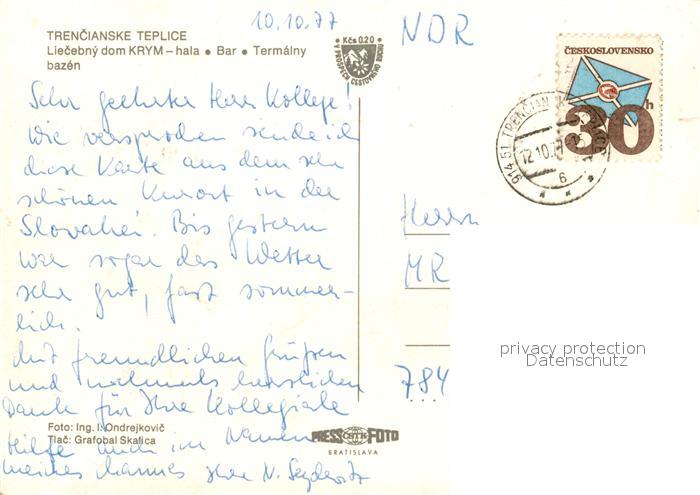 10.10.77
TRENČIANSKE TEPLICE
Liečebný dom KRYM – hala • Bar • Termálny
bazén
Kčs 0.20
V PROSPECH CESTOVNÉHO RUCHU
NDR
ČESKOSLOVENSKO
30h
914 51 TRENČIAN
12.10.77
6
Sehr geehrter Herr Kollege!
Wie versprochen sende ich
diese Karte aus dem sehr
schönen Kurort in der
Slovakei. Bis gestern
war sogar das Wetter
sehr gut, fast sommer-
lich.
Mit freundlichen Grüßen
und nochmals herzlichen
Dank für Ihre kollegiale
Hilfe auch im Namen
meines Mannes Ihre N.
Herrn
MR
784
privacy protection
Datenschutz
Foto: Ing. I. Ondrejkovič
Tlač: Grafobal Skalica
PRESS ČSTK FOTO
BRATISLAVA